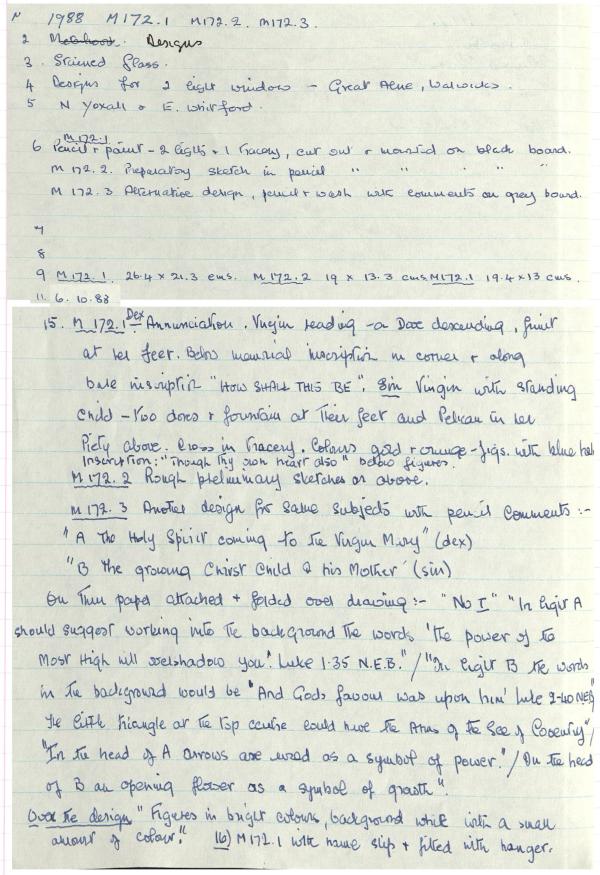 1988 M172.1 M172.2. M172.3.
2 Designs
3. Stained Glass.
4 Designs for 2 light window - Great Alne, Warwicks.
5 N Yoxall & E. Whitford.
M172.1
6 Pencil + paint - 2 lights + 1 tracery, cut out + mounted on black board.
M 172.2. Preparatory sketch in pencil " " " "
M 172.3 Alternative design, pencil + wash with comments on grey board.
7
8
9 M172.1. 26.4 x 21.3 cms. M172.2 19 x 13.3 cms. M172.1 19.4 x 13 cms.
11. 6.10.88
15. M 172.1 Dex Annunciation. Virgin reading - a Dove descending, fruit
at her feet. Below memorial inscription in corner + along
base inscription "HOW SHALL THIS BE". Sin Virgin with standing
Child - Two doves + fountain at their feet and Pelican in her
Piety above. Cross in tracery. Colours gold + orange - figs. with blue
Inscription: "Though thy own heart also" below figures.
M172.2 Rough preliminary sketches of above.
M172.3 Another design for same subjects with pencil comments :-
"A The Holy Spirit coming to the Virgin Mary" (dex)
"B The growing Christ Child & his Mother" (sin)
On thin paper attached + folded over drawing :- "No I" "In light A
should suggest working into the background the words 'the power of the
Most High will overshadow you'. Luke 1.35 N.E.B."/"In light B the words
in the background would be 'And Gods favour was upon him' Luke 2-40 NEB"
The little triangle at the top centre could have the Arms of the See of Coventry"/
"In the head of A arrows are used as a symbol of power."/On the head
of B an opening flower as a symbol of growth".
Over the design "Figures in bright colours, background white with a small
amount of colour." 16) M172.1 with name slip + fitted with hanger.